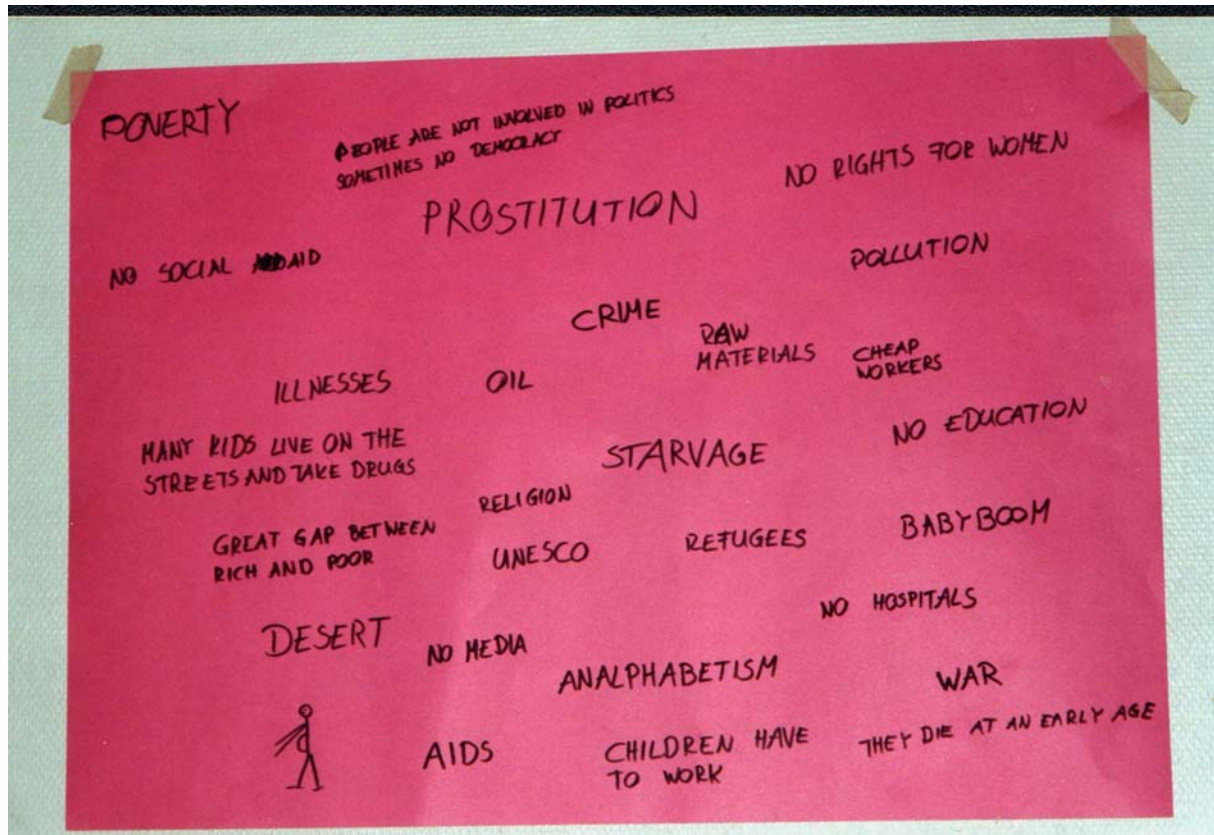 POVERTY
PEOPLE ARE NOT INVOLVED IN POLITICS
SOMETIMES NO DEMOCRACY
NO RIGHTS FOR WOMEN
PROSTITUTION
NO SOCIAL AID
POLLUTION
CRIME
RAW
MATERIALS
CHEAP
WORKERS
ILLNESSES
OIL
MANY KIDS LIVE ON THE
STREETS AND TAKE DRUGS
STARVAGE
NO EDUCATION
RELIGION
GREAT GAP BETWEEN
RICH AND POOR
UNESCO
REFUGEES
BABYBOOM
DESERT
NO MEDIA
NO HOSPITALS
ANALPHABETISM
WAR
AIDS
CHILDREN HAVE
TO WORK
THEY DIE AT AN EARLY AGE